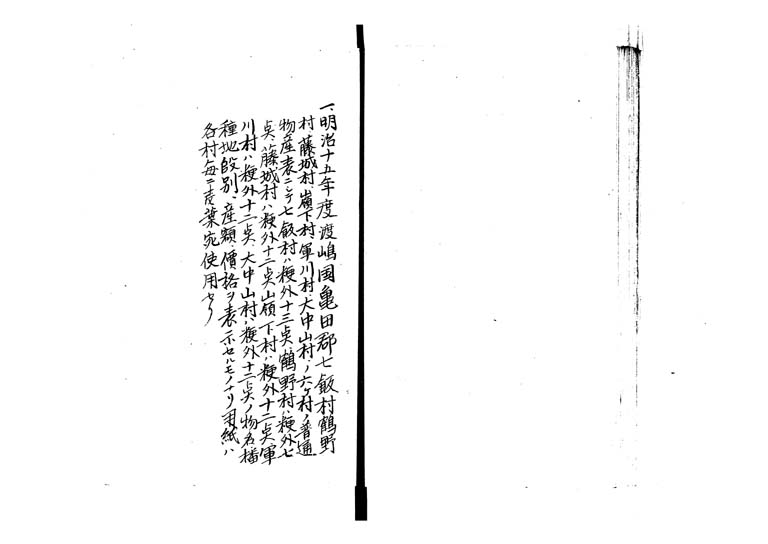 一、明治十五年度渡嶋国亀田郡七飯村鶴野
村、藤城村、嶺下村、軍川村、大中山村、ノ六ケ村ノ普通
物産表ニシテ七飯村ハ粳外十三点、鶴野村ハ粳外七
点、藤城村ハ粳外十二点山嶺下村ハ粳外十二点、軍
川村ハ粳外十二点、大中山村ハ粳外十二点ノ物名播
種地段別、産額、價格ヲ表示セルモノナリ用紙ハ
各村毎ニ弐葉宛使用セリ